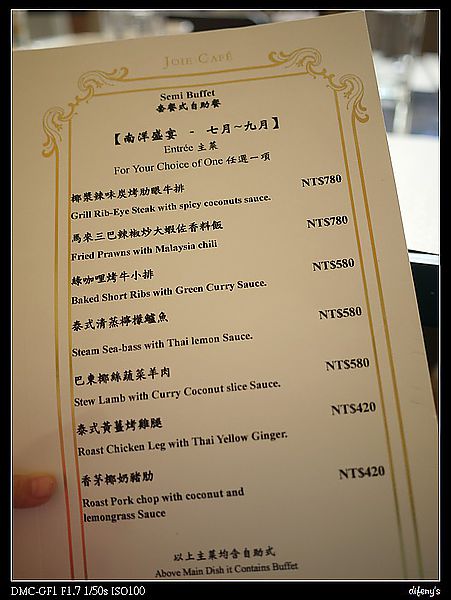 JOIE CAFÉ
Semi Buffet
套餐式自助餐
【南洋盛宴 - 七月~九月】
Entrée 主菜
For Your Choice of One 任選一項
椰漿辣味炭烤肋眼牛排 NT$780
Grill Rib-Eye Steak with spicy coconuts sauce.
馬來三巴辣椒炒大蝦佐香料飯 NT$780
Fried Prawns with Malaysia chili
綠咖哩烤牛小排 NT$580
Baked Short Ribs with Green Curry Sauce.
泰式清蒸檸檬鱸魚 NT$580
Steam Sea-bass with Thai lemon Sauce.
巴東椰絲蔬菜羊肉 NT$580
Stew Lamb with Curry Coconut slice Sauce.
泰式黃薑烤雞腿 NT$420
Roast Chicken Leg with Thai Yellow Ginger.
香茅椰奶豬肋 NT$420
Roast Pork chop with coconut and
lemongrass Sauce
以上主菜均含自助式
Above Main Dish it Contains Buffet
DMC-GF1 F1.7 1/50s ISO100
difeny's